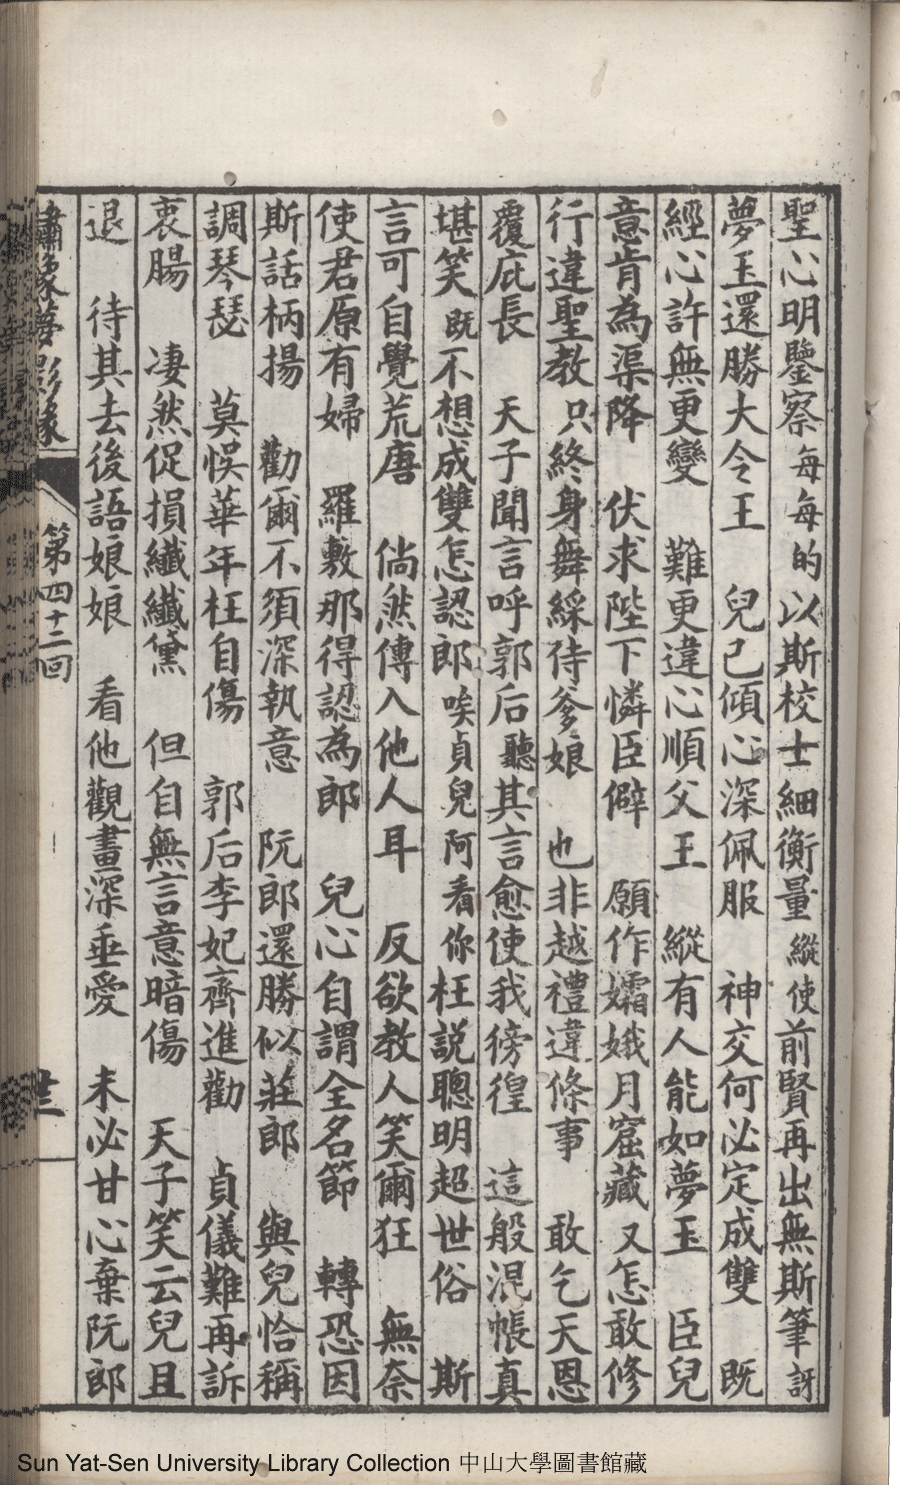 聖心明鑒察每每的以斯校士細衡量縱使前賢再出無斯筆訝
夢玉還勝大令王　兒己傾心深佩服　神交何必定成雙　既
經心許無更變　難更違心順父王　縱有人能如夢玉　臣兒
意肯為渠降　伏求陛下憐臣僻　願作孀娥月窟藏又怎敢修
行違聖教只終身舞綵待爹娘　也非越禮違條事　敢乞天恩
覆庇長　天子聞言呼郭后聽其言愈使我徬徨　這般混帳真
堪笑既不想成雙怎認郎唉貞兒阿看你枉説聰明超世俗　斯
言可自覺荒唐　倘然傳入他人耳　反欲教人笑爾狂　無奈
使君原有婦　羅敷那得認為郎　兒心自謂全名節　轉恐因
斯話柄揚　勸爾不須深執意　阮郎還勝似莊郎　與兒恰稱
調琴瑟　莫悞華年枉自傷　郭后李妃齊進勸　貞儀難再訴
衷腸　凄然促損纖纖黛　但自無言意暗傷　天子笑云兒且
退　待其去後語娘娘　看他觀畫深垂愛　未必甘心棄阮郎
繡像夢影緣　第四十二回
Sun Yat-Sen University Library Collection 中山大學圖書館藏